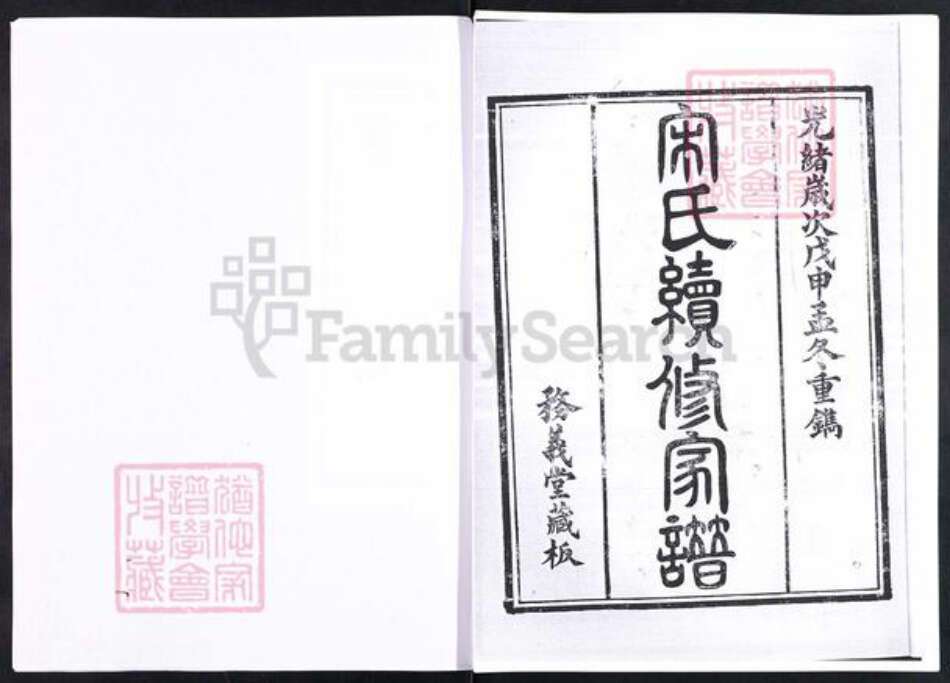 光緒歲次戊申孟冬重鐫
宋氏續修家譜
務義堂藏板
猶他家譜學會收藏
猶他家譜學會收藏
FamilySearch